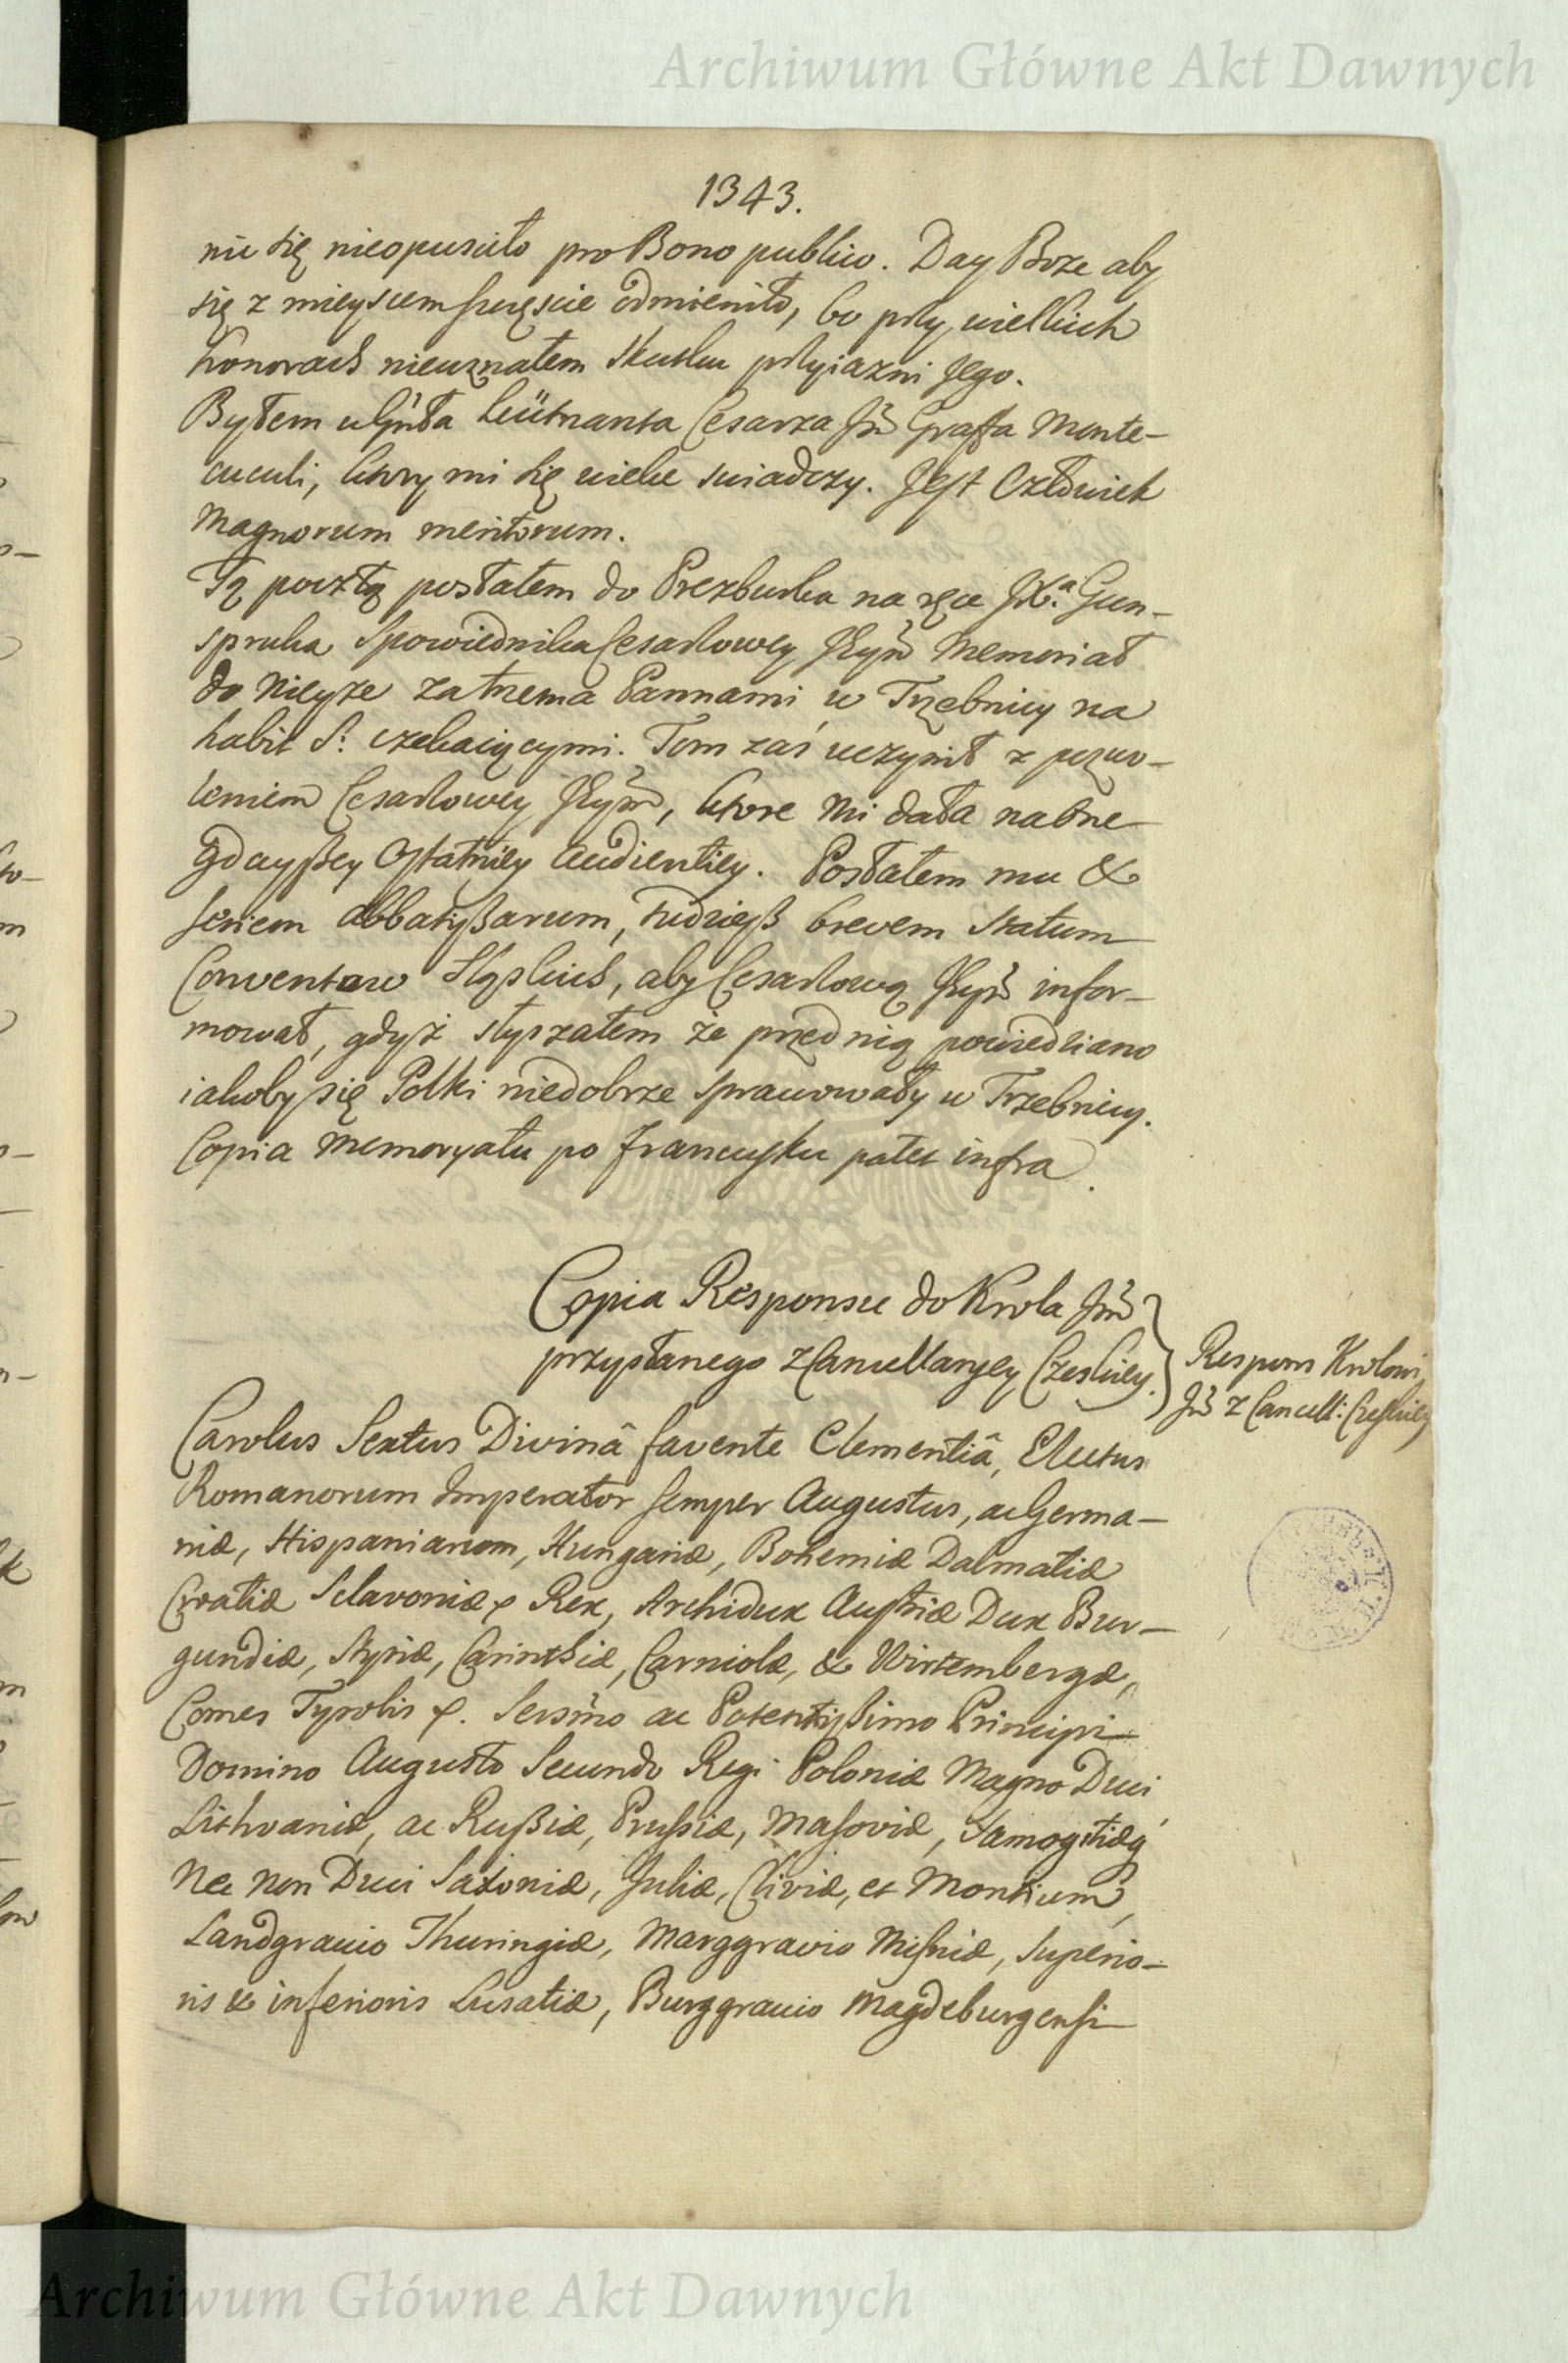 Archiwum Główne Akt Dawnych
1343.
nic się nieopusciło pro Bono publico. Day Boze aby
się z mieyscem szczęscie odmieniło, bo przy wielkich
honorach nieuznałem skutku przyiazni Jego.
Byłem u Gńła Leütnanta Cesarza Jm̃ Graffa Monte-
cuculi, ktory mi się wiele swiadczy. Jest Człowiek
Magnorum meritorum.
Tą pocztą posłałem do Prezburka na ręce JX.ª Gun-
spruka Spowiednika Cesarzowey Jeym̃ Memoriał
do Nieyze za trzema Pannami w Trzebnicy na
habit S: czekaiącymi. Tom zaś uczynił z pozwo-
leniem Cesarzowey Jeym̃, ktore mi dała na one-
gdayszey Ostatniey Audientiey. Posłałem mu &
seriem Abbatissarum, tudziesz brevem statum
Conventow Sląskich, aby Cesarzową Jeym̃ infor-
mował, gdyż słyszałem że przed nią powiedziano
iakoby się Polki niedobrze sprawowały w Trzebnicy.
Copia Memoryału po Francusku patet infra.
Copia Responsu do Krola Jm̃
przysłanego z Cancellaryey Czeskiey.
Respons Krolowi
Jm̃ z Cancell: Czeskiey
Carolus Sextus Divinâ favente Clementiâ, Electus
Romanorum Imperator semper Augustus, ac Germa-
niæ, Hispaniarum, Hungariæ, Bohemiæ Dalmatiæ
Croatiæ Sclavoniæ Rex, Archidux Austriæ Dux Bur-
gundiæ, Styriæ, Carinthiæ, Carniolæ, & Wirtembergæ,
Comes Tyrolis. Sersm̃o ac Potentissimo Principi
Domino Augusto Secundo Regi Poloniæ Magno Duci
Lithvaniæ, ac Russiæ, Prussiæ, Masoviæ, Samogitiæq
Nec non Duci Saxoniæ, Juliæ, Cliviæ, et Montium,
Landgravio Thuringiæ, Marggravio Misniæ, Superio-
ris & inferioris Lusatiæ, Burggravio Magdeburgensi
Archiwum Główne Akt Dawnych